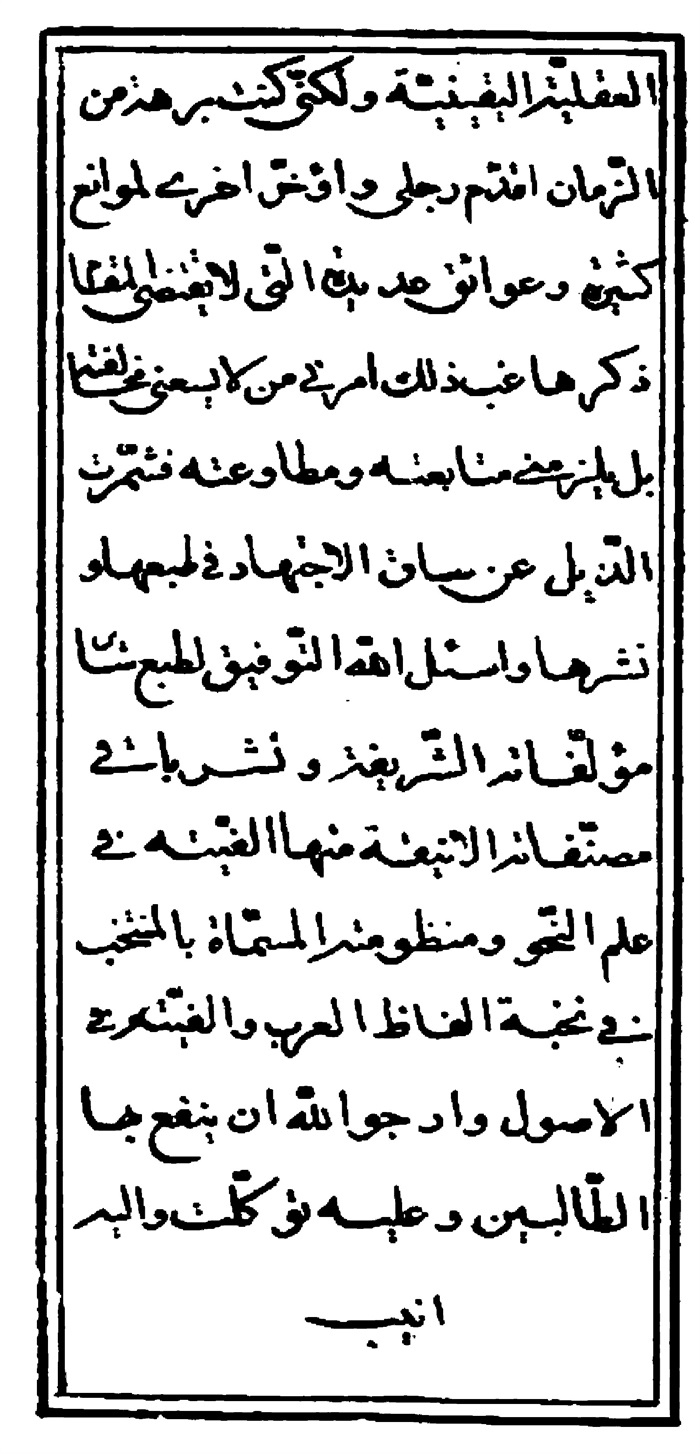 العقليّة اليقينيّة ولكنّى كنت برهة من
الزّمان اقدّم رجلى واؤخّر اخرى لموانع
كثيرة وعوائق عديدة الّتى لا يقتضى المقام
ذكرها غب ذلك امرنى من لا يسعنى مخالفته
بل يلزمنى متابعته ومطاوعته فشمّرت
الذّيل عن ساق الاجتهاد فى طبعها و
نشرها واسئل الله التّوفيق لطبع سائر
مؤلّفاته الشّريفة ونشر باقى
مصنّفاته الانيفة منها الفيّته فى
علم النّحو ومنظومته المسمّاة بالمنتخب
فى نخبة الفاظ العرب والفيّته فى
الاصول وارجو الله ان ينفع بها
الطّالبين وعليه توكّلت واليه
انيب